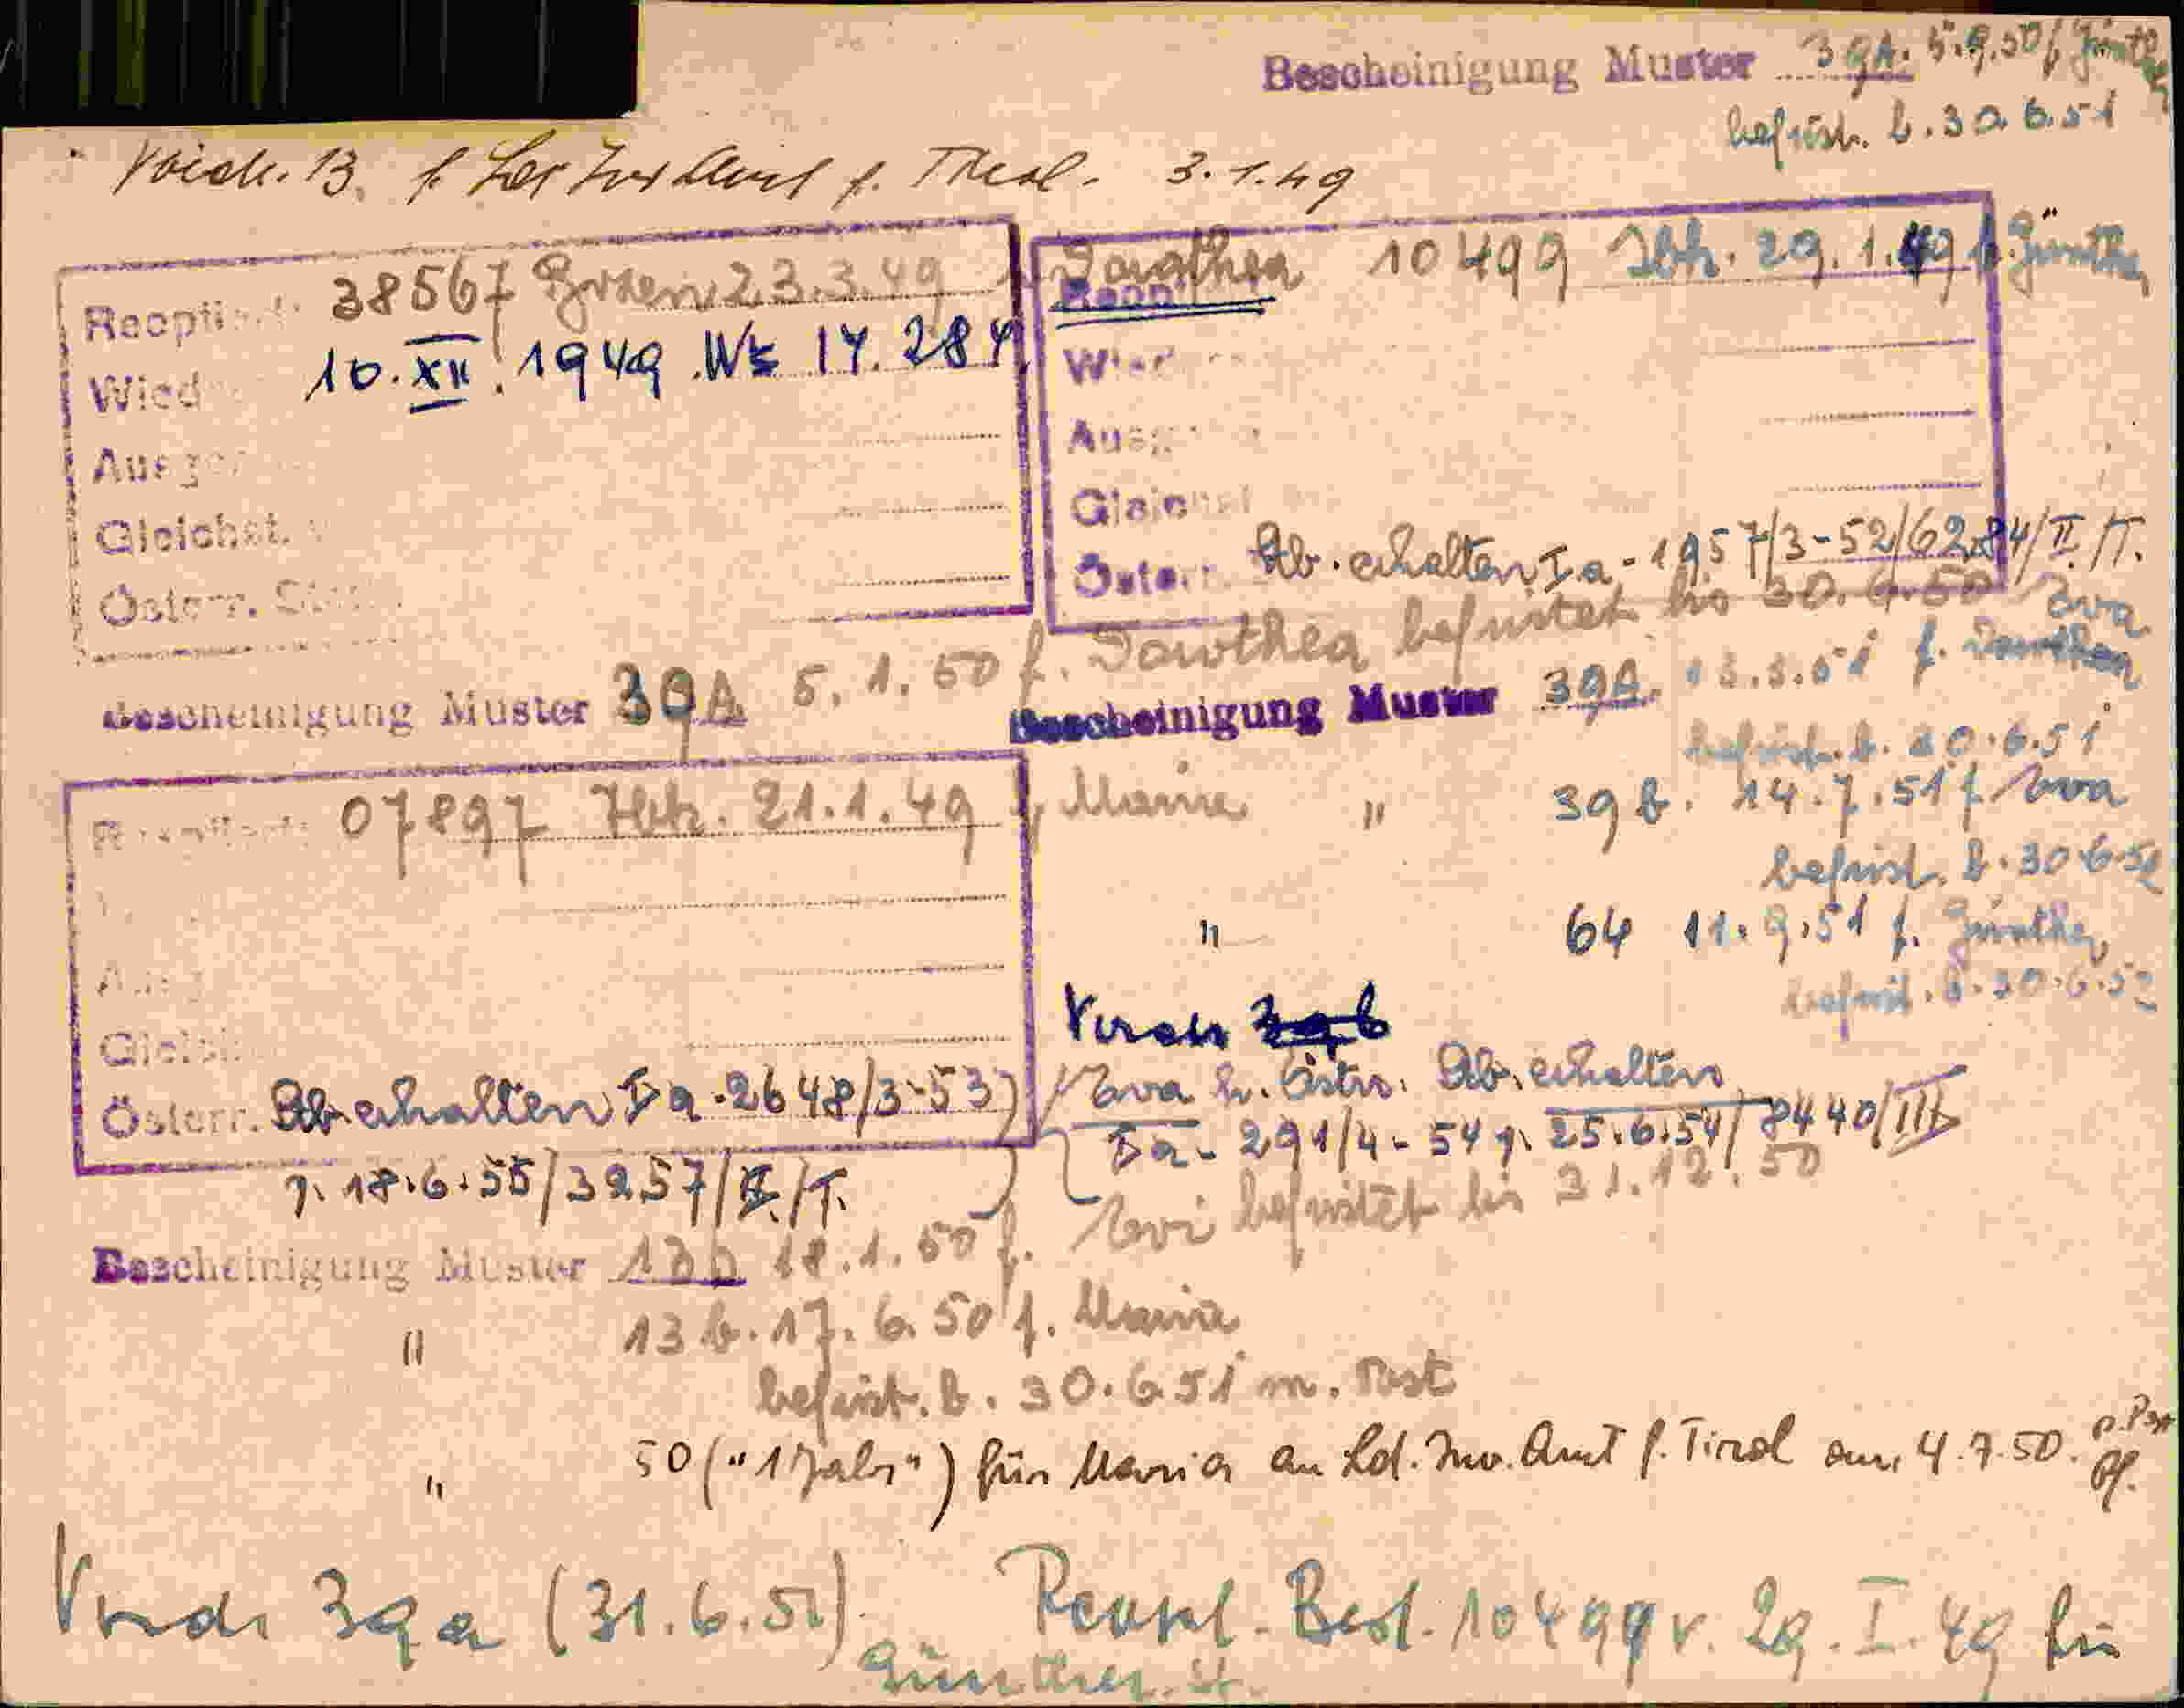 Bescheinigung Muster 39A. 5.9.50 f. Günther
befrist. b. 30.6.51
13. f. f. Tirol. 3.1.49
Reoptiert: 38567 Bozen 23.3.49 f. Dorothea
Wied 10.XII.1949 14.284
Ausger
Gleichst.
Österr.
10499 Ibk. 29.1.49 f. Günther
Ausg
Gleichst
Österr. Stb. erhalten Ia-1957/3-52/6284/II/T.
Bescheinigung Muster 39A 5.1.50 f. Dorothea befristet bis 30.6.50
Bescheinigung Muster 39A. f. Dorothea
befrist. b. 30.6.51
07897 Ibk. 21.1.49 f. Maria
Österr. Stb. erhalten Ia-2648/3-53
v. 18.6.55/3257/II/T.
" 39 b. 14.7.51 f. Eva
befrist. b. 30.6.52
" 64 11.9.51 f. Günther
befrist. b. 30.6.52
Vordr 39b
Eva h. Östrr. Stb. erhalten
Ia-291/4-54 v. 25.6.54/8440/III
Bescheinigung Muster 13b 18.1.50 f. Evi befristet bis 31.12.50
" 13 b. 17.6.50 f. Maria
befrist. b. 30.6.51 m. Post
" 50 ("1 Jahr") für Maria an Ld. Inv. Amt f. Tirol am 4.7.50. p. Post
Vordr 39a (31.6.51) Reopt. Best. 10499 v. 29.I.49 für
Günther